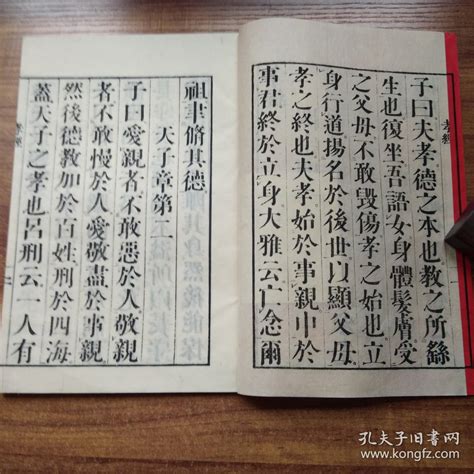 孝經
子曰夫孝德之本也教之所繇
生也復坐吾語女身體髮膚受
之父母不敢毀傷孝之始也立
身行道揚名於後世以顯父母
孝之終也夫孝始於事親中於
事君終於立身大雅云亡念爾
祖聿脩其德
天子章第二
子曰愛親者不敢惡於人敬親
者不敢慢於人愛敬盡於事親
然後德教加於百姓刑於四海
蓋天子之孝也呂刑云一人有
孝經
孔夫子旧书网
www.kongfz.com